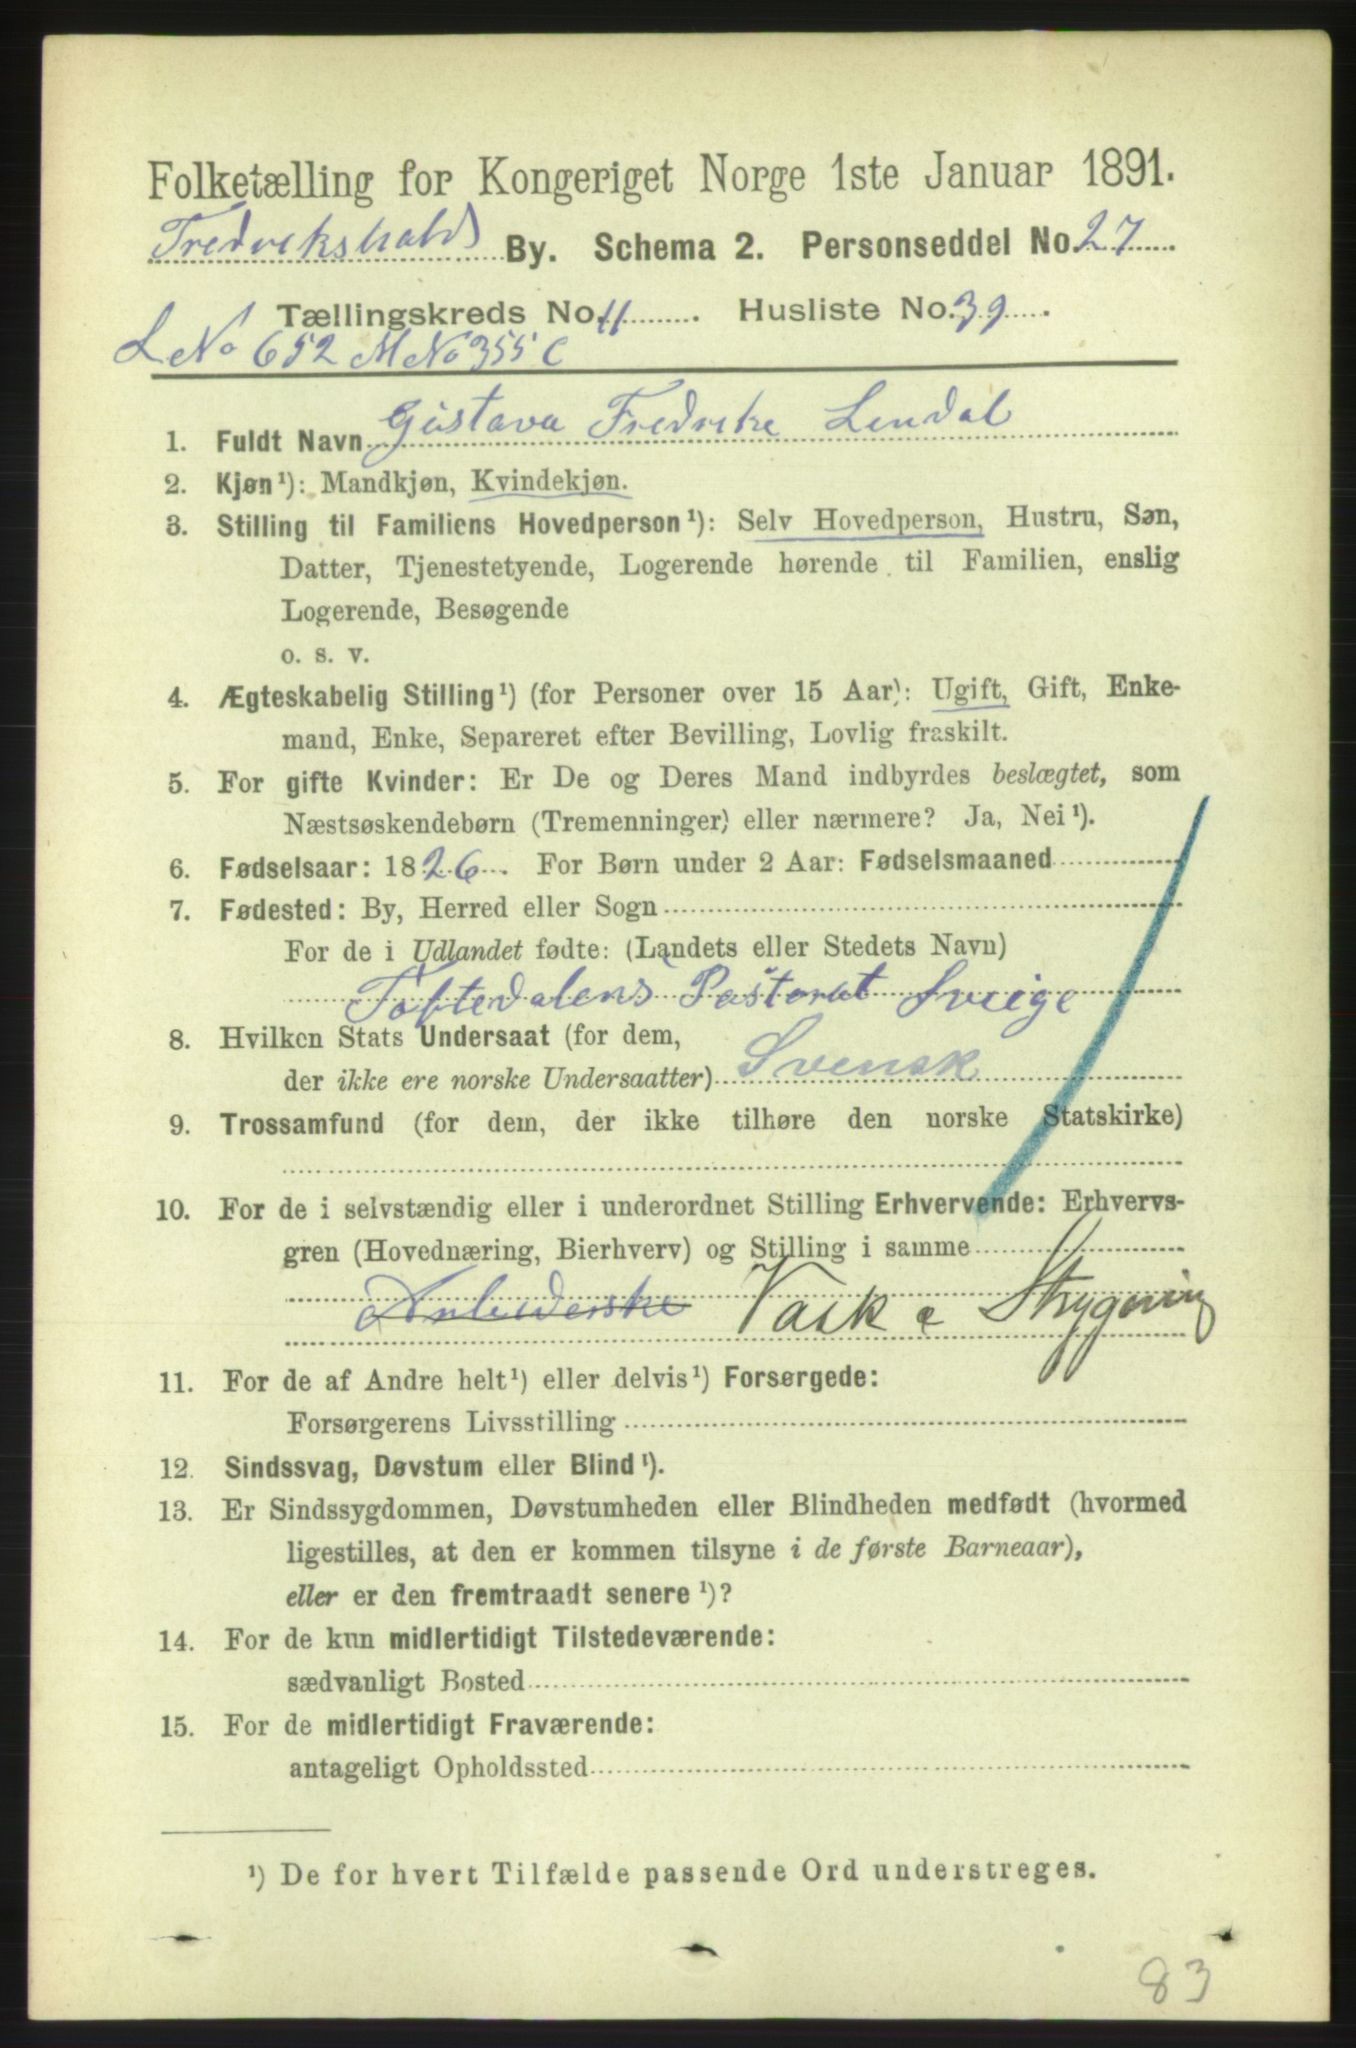 Folketælling for Kongeriget Norge 1ste Januar 1891.
Fredrikshalds By. Schema 2. Personseddel No. 27
Tællingskreds No. 11. Husliste No. 39.
L No 652 M No 355 C
1. Fuldt Navn Gustava Fredrike Lendal
2. Kjøn¹): Mandkjøn, Kvindekjøn.
3. Stilling til Familiens Hovedperson¹): Selv Hovedperson, Hustru, Søn,
Datter, Tjenestetyende, Logerende hørende til Familien, enslig
Logerende, Besøgende
o. s. v.
4. Ægteskabelig Stilling¹) (for Personer over 15 Aar): Ugift, Gift, Enke-
mand, Enke, Separeret efter Bevilling, Lovlig fraskilt.
5. For gifte Kvinder: Er De og Deres Mand indbyrdes beslægtet, som
Næstsøskendebørn (Tremenninger) eller nærmere? Ja, Nei¹).
6. Fødselsaar: 1826. For Børn under 2 Aar: Fødselsmaaned
7. Fødested: By, Herred eller Sogn
For de i Udlandet fødte: (Landets eller Stedets Navn)
Töftedalens Pastorat Sveige
8. Hvilken Stats Undersaat (for dem,
der ikke ere norske Undersaatter) Svensk
9. Trossamfund (for dem, der ikke tilhøre den norske Statskirke)
10. For de i selvstændig eller i underordnet Stilling Erhvervende: Erhvervs-
gren (Hovednæring, Bierhverv) og Stilling i samme
Arbederske Vask & Strygning
11. For de af Andre helt¹) eller delvis¹) Forsørgede:
Forsørgerens Livsstilling
12. Sindssvag, Døvstum eller Blind¹).
13. Er Sindssygdommen, Døvstumheden eller Blindheden medfødt (hvormed
ligestilles, at den er kommen tilsyne i de første Barneaar),
eller er den fremtraadt senere¹)?
14. For de kun midlertidigt Tilstedeværende:
sædvanligt Bosted
15. For de midlertidigt Fraværende:
antageligt Opholdssted
¹) De for hvert Tilfælde passende Ord understreges.
83